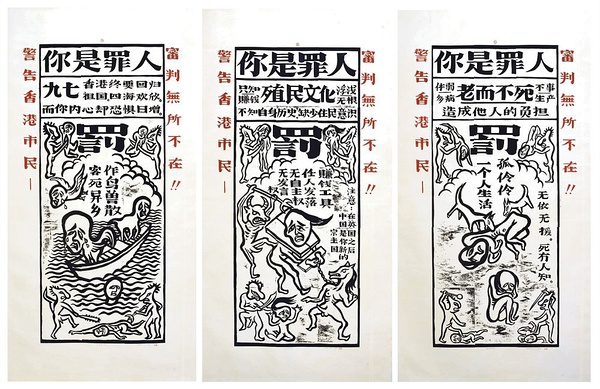 審判無所不在!!
警告香港市民—
你是罪人
九七 香港终要回归
祖国,四海欢欣,
而你内心却恐惧日增
罰
作鸟兽散
客死异乡
審判無所不在!!
警告香港市民—
你是罪人
只知赚钱 殖民文化 浮浅无根
不知自身历史缺少住民意识
罰
赚钱工具
任人发落
无自主权
无发言权
注意:在英国之后
中国是你新的
宗主国
審判無所不在!!
警告香港市民—
你是罪人
体弱多病 老而不死 不事生产
造成他人的负担
罰
孤伶伶
一个人生活
无依无援,死有人知.